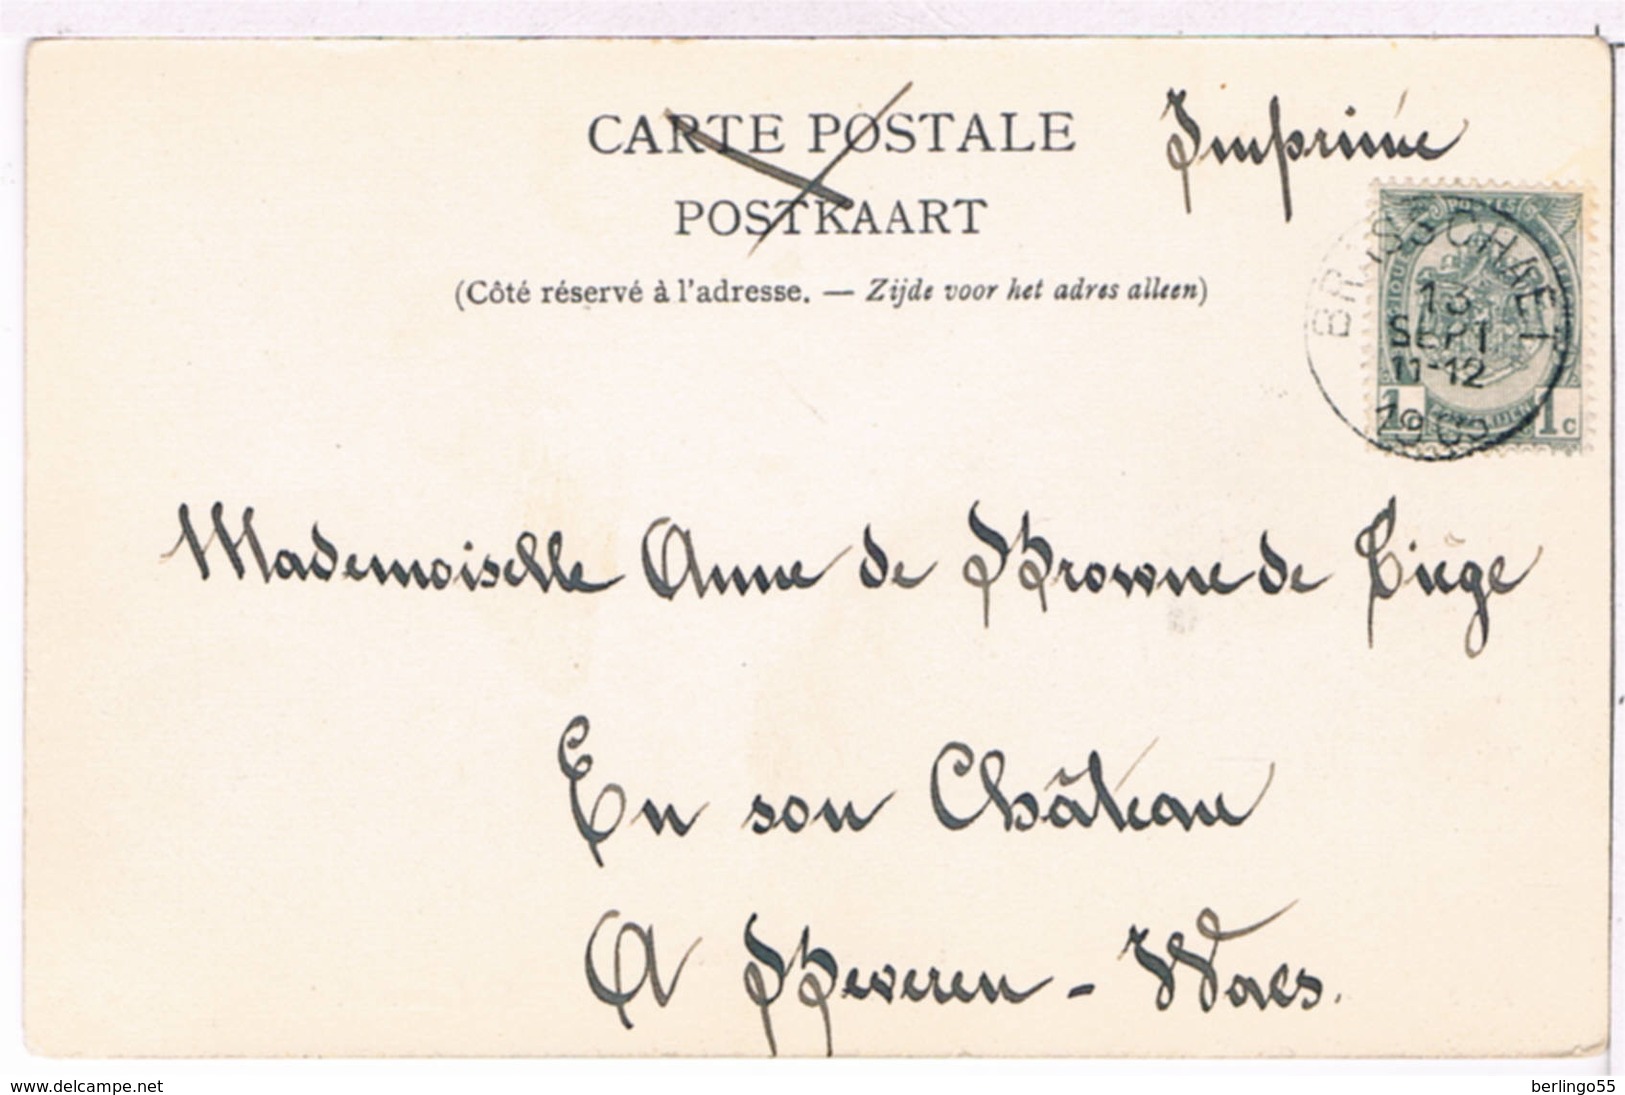 CARTE POSTALE
Imprimé
POSTKAART
(Côté réservé à l'adresse. — Zijde voor het adres alleen)
BRASSCHAET
13
SEPT
11-12
1c
Mademoiselle Anne de Browne de Tiège
En son Château
A Beveren - Waes.
www.delcampe.net
berlingo55